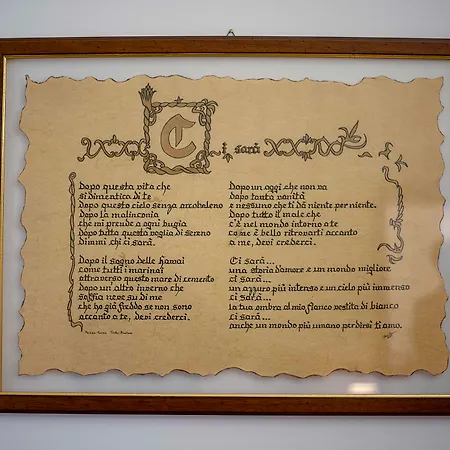 Ci sarà
Dopo questa vita che
si dimentica di te
dopo questo cielo senza arcobaleno
dopo la malinconia
che mi prende a ogni bugia
dopo tutta questa voglia di sereno
dimmi chi ci sarà.
Dopo il sogno delle Hawai
come tutti i marinai
attraverso questo mare di cemento
dopo un'altro inverno che
soffia neve su di me
che ho già freddo se non sono
accanto a te, devi crederci.
Dopo un oggi che non va
dopo tanta vanità
e nessuno che ti dà niente per niente.
Dopo tutto il male che
c'è nel mondo intorno a te
com'è bello ritrovarti accanto
a me, devi crederci.
Ci sarà...
una storia d'amore e un mondo migliore
ci sarà...
un azzurro più intenso e un cielo più immenso
ci sarà...
la tua ombra al mio fianco vestita di bianco
ci sarà...
anche un mondo più umano perdirsi ti amo.